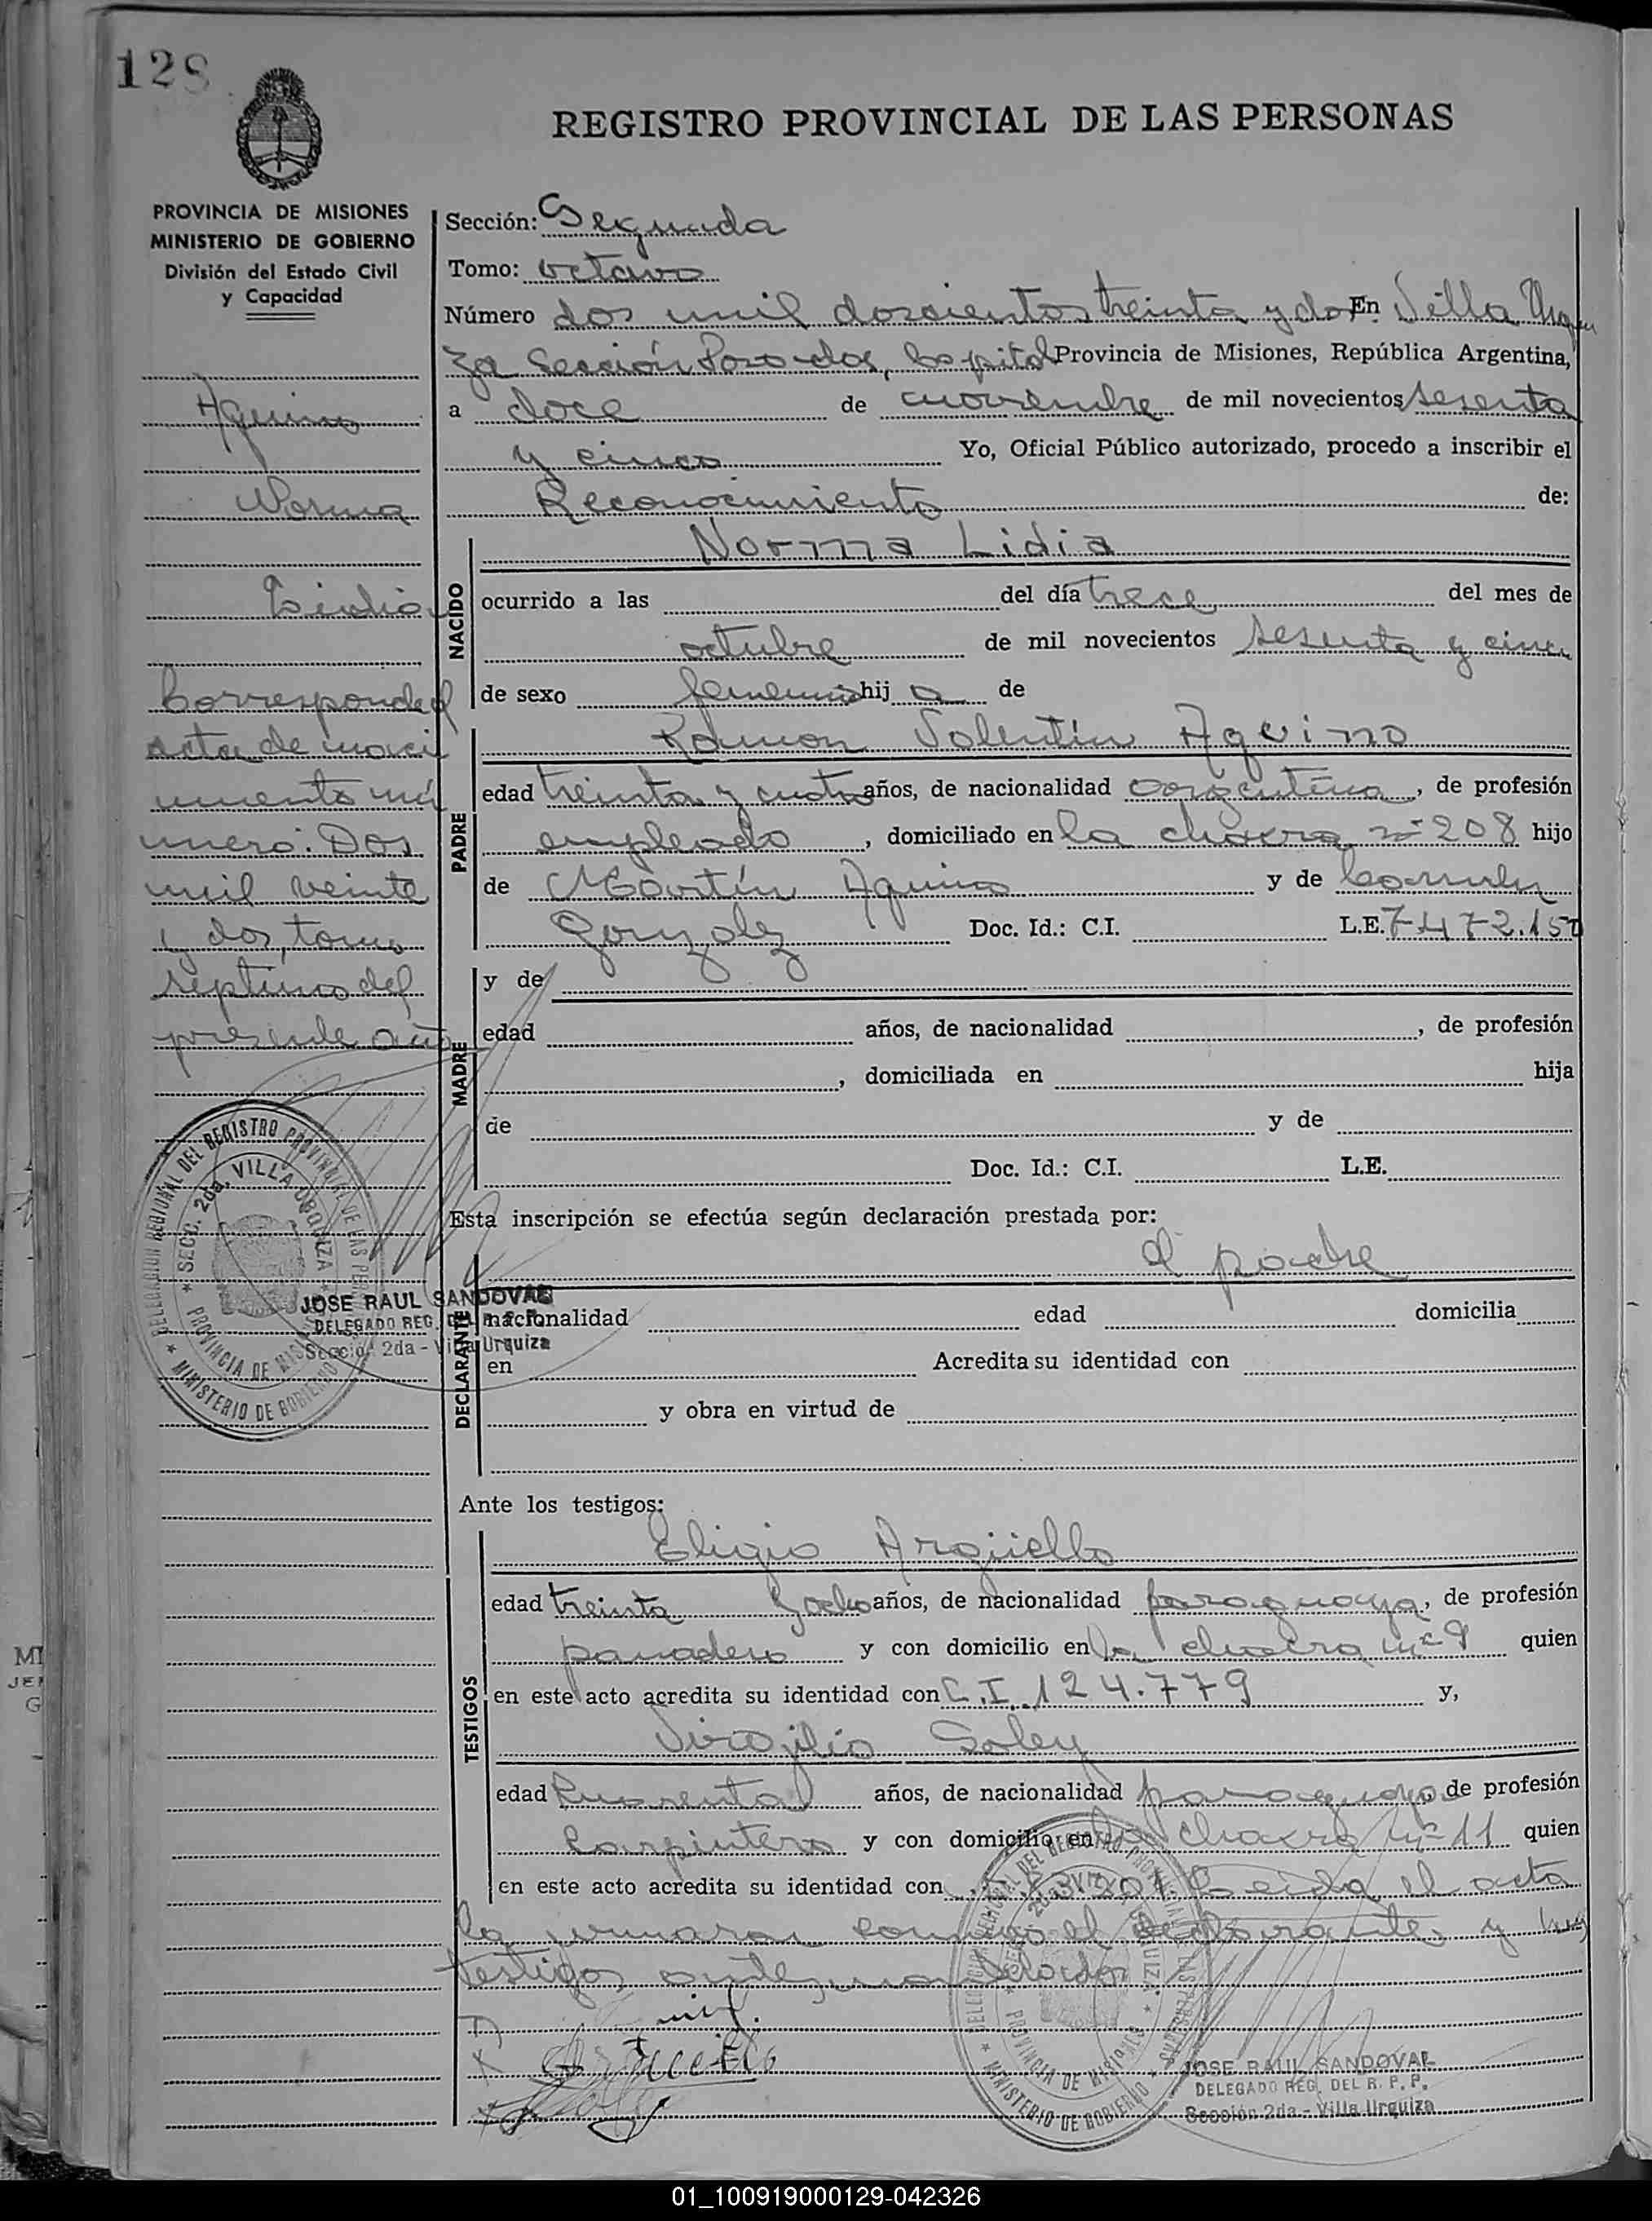 128
REGISTRO PROVINCIAL DE LAS PERSONAS
PROVINCIA DE MISIONES
MINISTERIO DE GOBIERNO
División del Estado Civil
y Capacidad
Aquino
Norma
Lidia
Corresponde al
acta de naci
miento nú
mero: Dos
mil veinte
y dos, tomo
septimo del
presente año
Sección: Segunda
Tomo: octavo
Número dos mil doscientos treinta y dos En Villa Urqui
za Sección Posadas, Capital Provincia de Misiones, República Argentina,
a doce de noviembre de mil novecientos sesenta
y cinco Yo, Oficial Público autorizado, procedo a inscribir el
Reconocimiento de:
NACIDO
Norma Lidia
ocurrido a las del día trece del mes de
octubre de mil novecientos sesenta y cinco
de sexo femenino hij a de
PADRE
Ramon Valentín Aquino
edad treinta y cuatro años, de nacionalidad argentina, de profesión
empleado, domiciliado en la chacra nº 208 hijo
de Martín Aquino y de
Gonzalez Doc. Id.: C.I. L.E. 7.472.150
MADRE
y de
edad años, de nacionalidad , de profesión
, domiciliada en hija
de y de
Doc. Id.: C.I. L.E.
Esta inscripción se efectúa según declaración prestada por:
DECLARANTE
el padre
nacionalidad edad domicilia
en Acredita su identidad con
y obra en virtud de
DELEGACION REGIONAL DEL REGISTRO PROVINCIAL DE LAS PERSONAS
SECC. 2da. VILLA URQUIZA
PROVINCIA DE MISIONES
MINISTERIO DE GOBIERNO
JOSE RAUL SANDOVAL
DELEGADO REG. DEL R. P. P.
Sección 2da - Villa Urquiza
Ante los testigos:
TESTIGOS
Eligio Argüello
edad treinta y ocho años, de nacionalidad paraguaya, de profesión
panadero y con domicilio en la chacra nº 9 quien
en este acto acredita su identidad con C.I. 124.779 y,
Virgilio Soley
edad Cuarenta años, de nacionalidad paraguaya de profesión
Carpintero y con domicilio en la chacra nº 11 quien
en este acto acredita su identidad con Leida el acta
la firmaran conmigo el declarante y los
testigos antes mencionados
DELEGACION REGIONAL DEL REGISTRO PROVINCIAL DE LAS PERSONAS
SECC. 2da. VILLA URQUIZA
PROVINCIA DE MISIONES
MINISTERIO DE GOBIERNO
JOSE RAUL SANDOVAL
DELEGADO REG. DEL R. P. P.
Sección 2da - Villa Urquiza
01_100919000129-042326